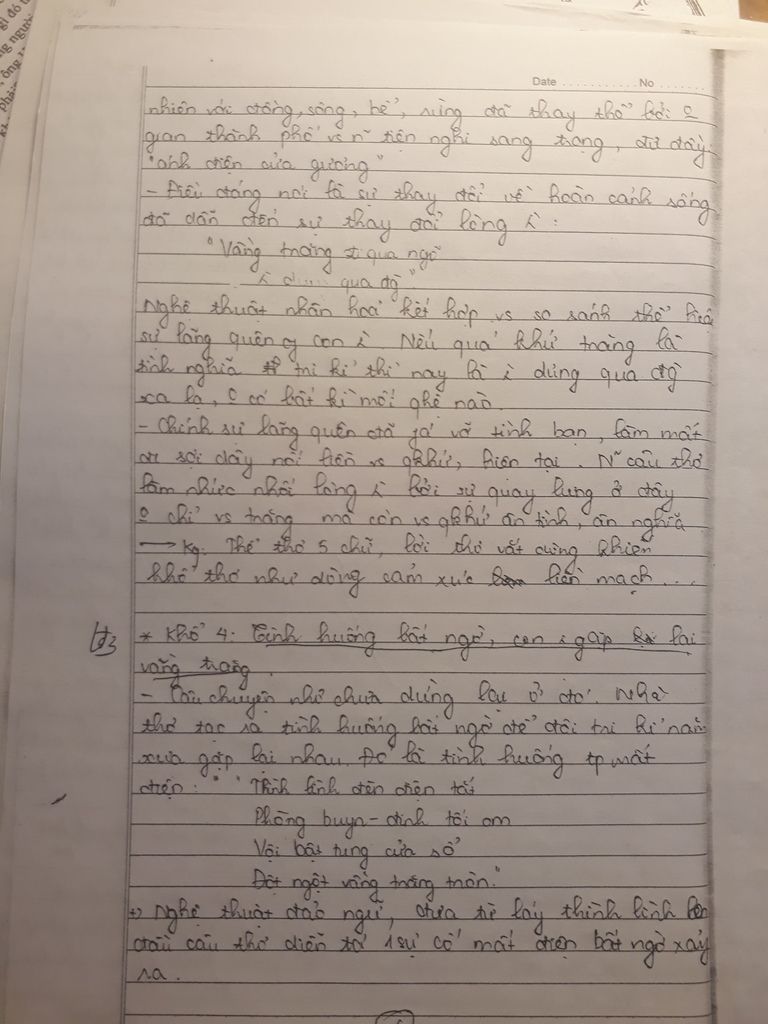 Date ........... No .......
nhiên với đồng, sông, bể, rừng đã thay thế bởi o
gian thành phố vs n~ tiện nghi sang trọng, đủ đầy:
"ánh điện cửa gương"
- Điều đáng nói là sự thay đổi về hoàn cảnh sống
đã dẫn đến sự thay đổi lòng ng :
"Vầng trăng đi qua ngõ
qua đg"
Nghệ thuật nhân hoá kết hợp vs so sánh thể hiện
sự lãng quên của con ng. Nếu quá khứ trăng là
tình nghĩa tri kỉ thì nay là ng dưng qua đg
xa lạ, o có bất kì mối ghé nào.
- Chính sự lãng quên đã phá vỡ tình bạn, làm mất
đi sợi dây nối liền vs qkhứ, hiện tại. N~ câu thơ
làm nhức nhối lòng ng bởi sự quay lưng ở đây
o chỉ vs trăng mà còn vs qkhứ ân tình, ân nghĩa
→ Kq: Thể thơ 5 chữ, lời thơ vắt dòng khiến
khổ thơ như dòng cảm xúc liền mạch...
* Khổ 4: Tình huống bất ngờ, con ng gặp lại
vầng trăng.
- Câu chuyện như chưa dừng lại ở đó. Nhà
thơ tạo ra tình huống bất ngờ để đôi tri kỉ năm
xưa gặp lại nhau. Đó là tình huống tp mất
điện: "Thình lình đèn điện tắt
Phòng buyn-đinh tối om
Vội bật tung cửa sổ
Đột ngột vầng trăng tròn."
+) Nghệ thuật đảo ngữ, đưa từ láy thình lình lên
đầu câu thơ diễn tả 1 sự cố mất điện bất ngờ xảy
ra.